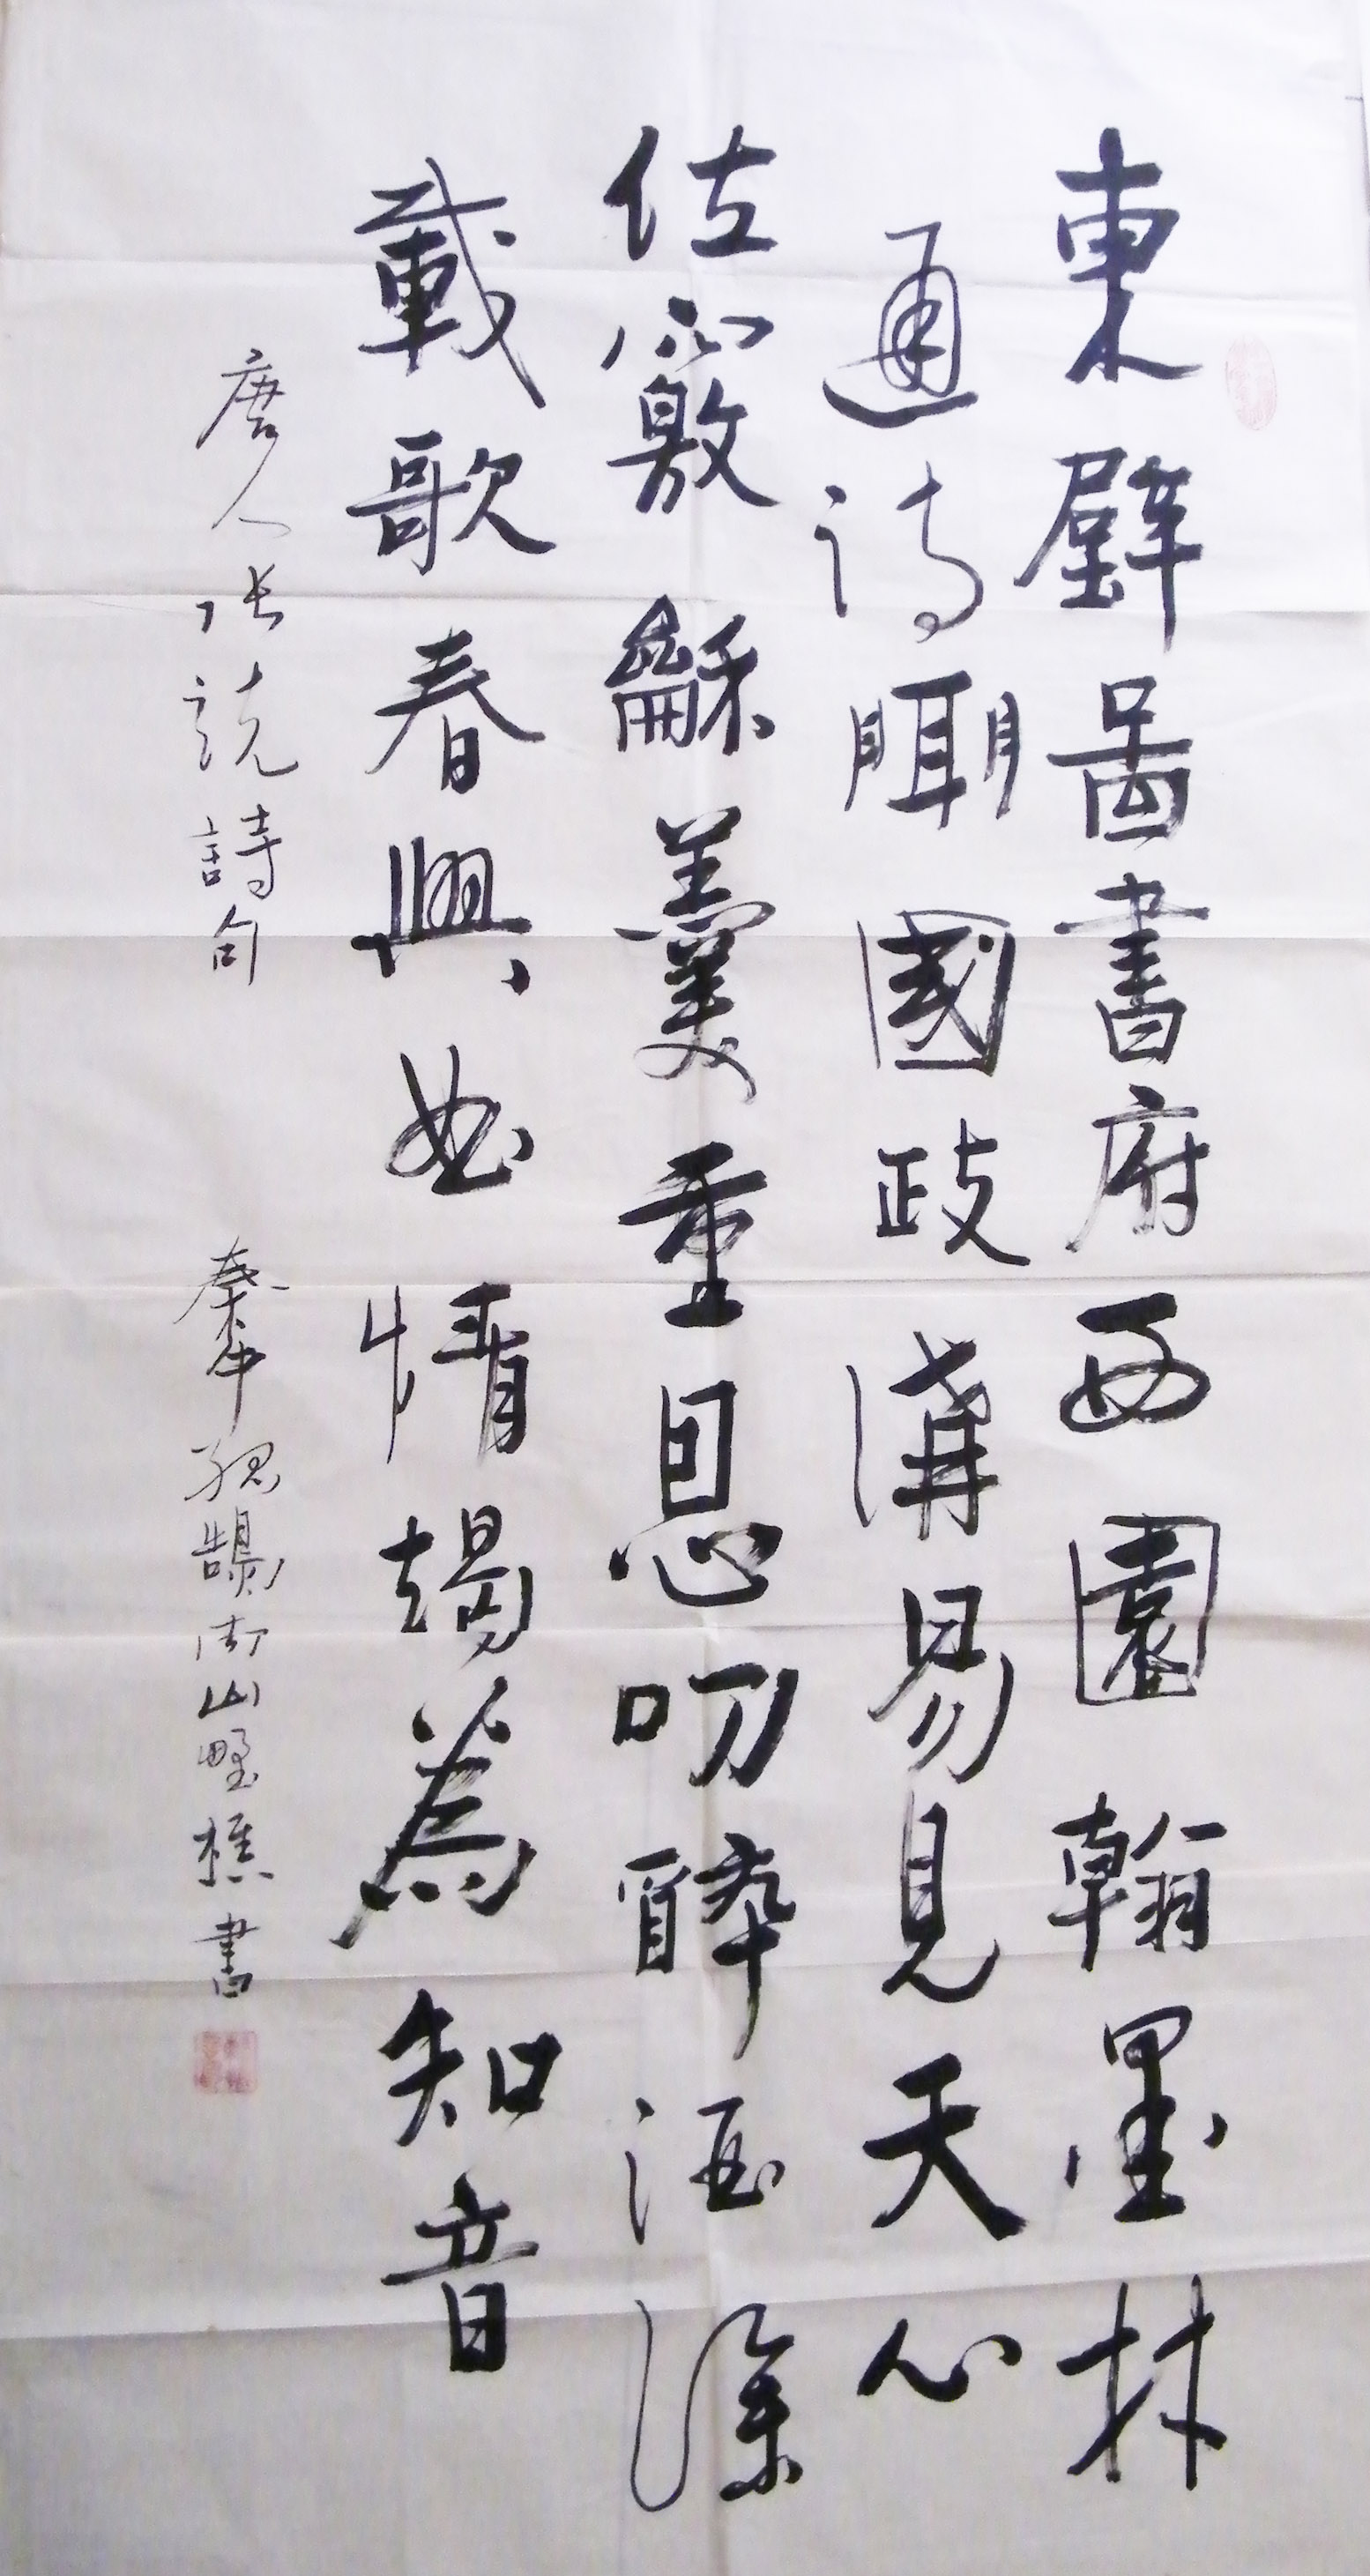 東壁圖書府西園翰墨林
通詩聞國政講易見天心
位竊龢羹重恩叨醉酒深
載歌春興曲情竭為知音
唐人張說詩句 秦中 鵠南山野樵書